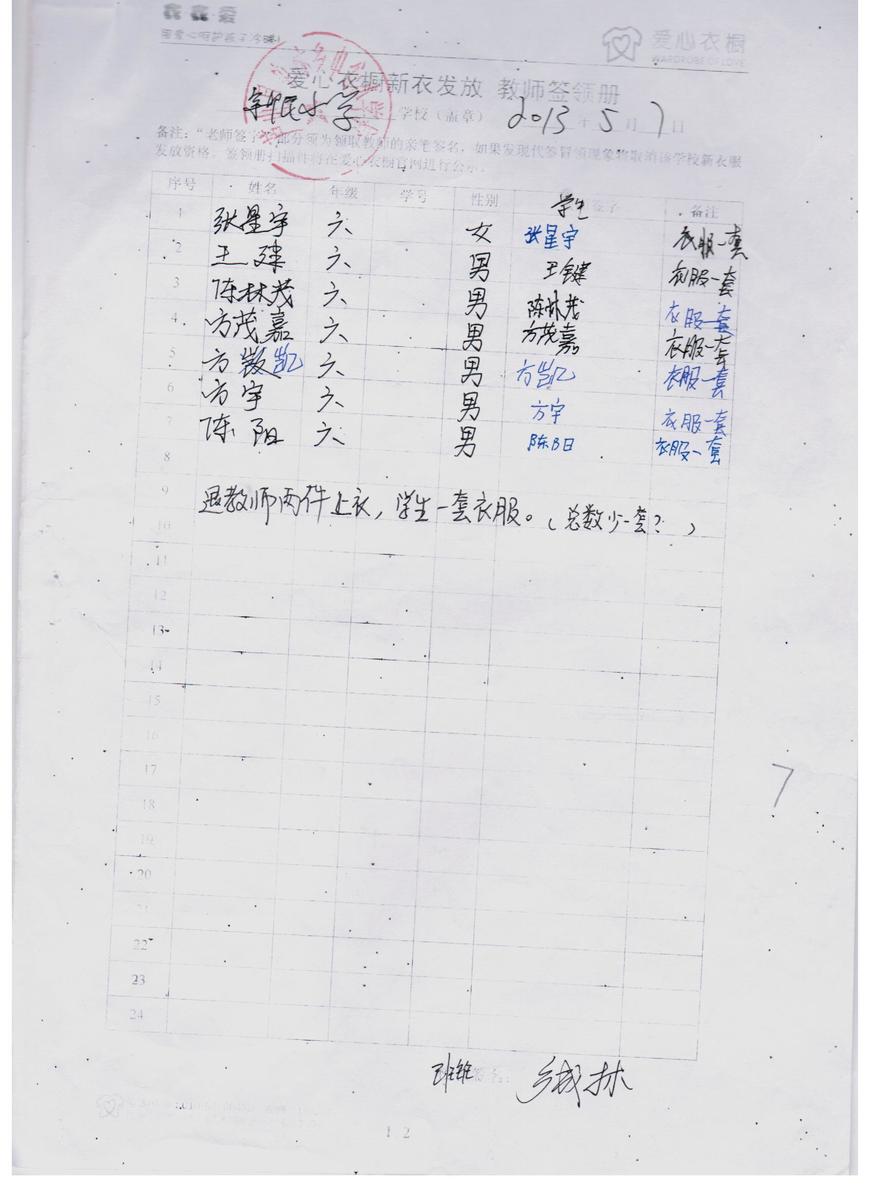 爱心衣橱
WARDROBE OF LOVE
爱心衣橱新衣发放 教师签领册
小学 学校（盖章） 2013年5月7日
备注：“老师签字”部分须为领取教师的亲笔签名，如果发现代签冒领现象将取消该学校新衣服
发放资格。签领册扫描件将在爱心衣橱官网进行公示。
序号 姓名 年级 学号 性别 学生签字 备注
1 张星宇 六 女 张星宇 衣服一套
2 王建 六 男 王键 衣服一套
3 陈林茂 六 男 陈林茂 衣服一套
4 方茂嘉 六 男 方茂嘉 衣服一套
5 方凯 六 男 方凯 衣服一套
6 方宇 六 男 方宇 衣服一套
7 陈阳 六 男 陈阳 衣服一套
8
9 退教师两件上衣，学生一套衣服。（总数少一套？）
10
11
12
13
14
15
16
17
7
18
19
20
21
22
23
24
12